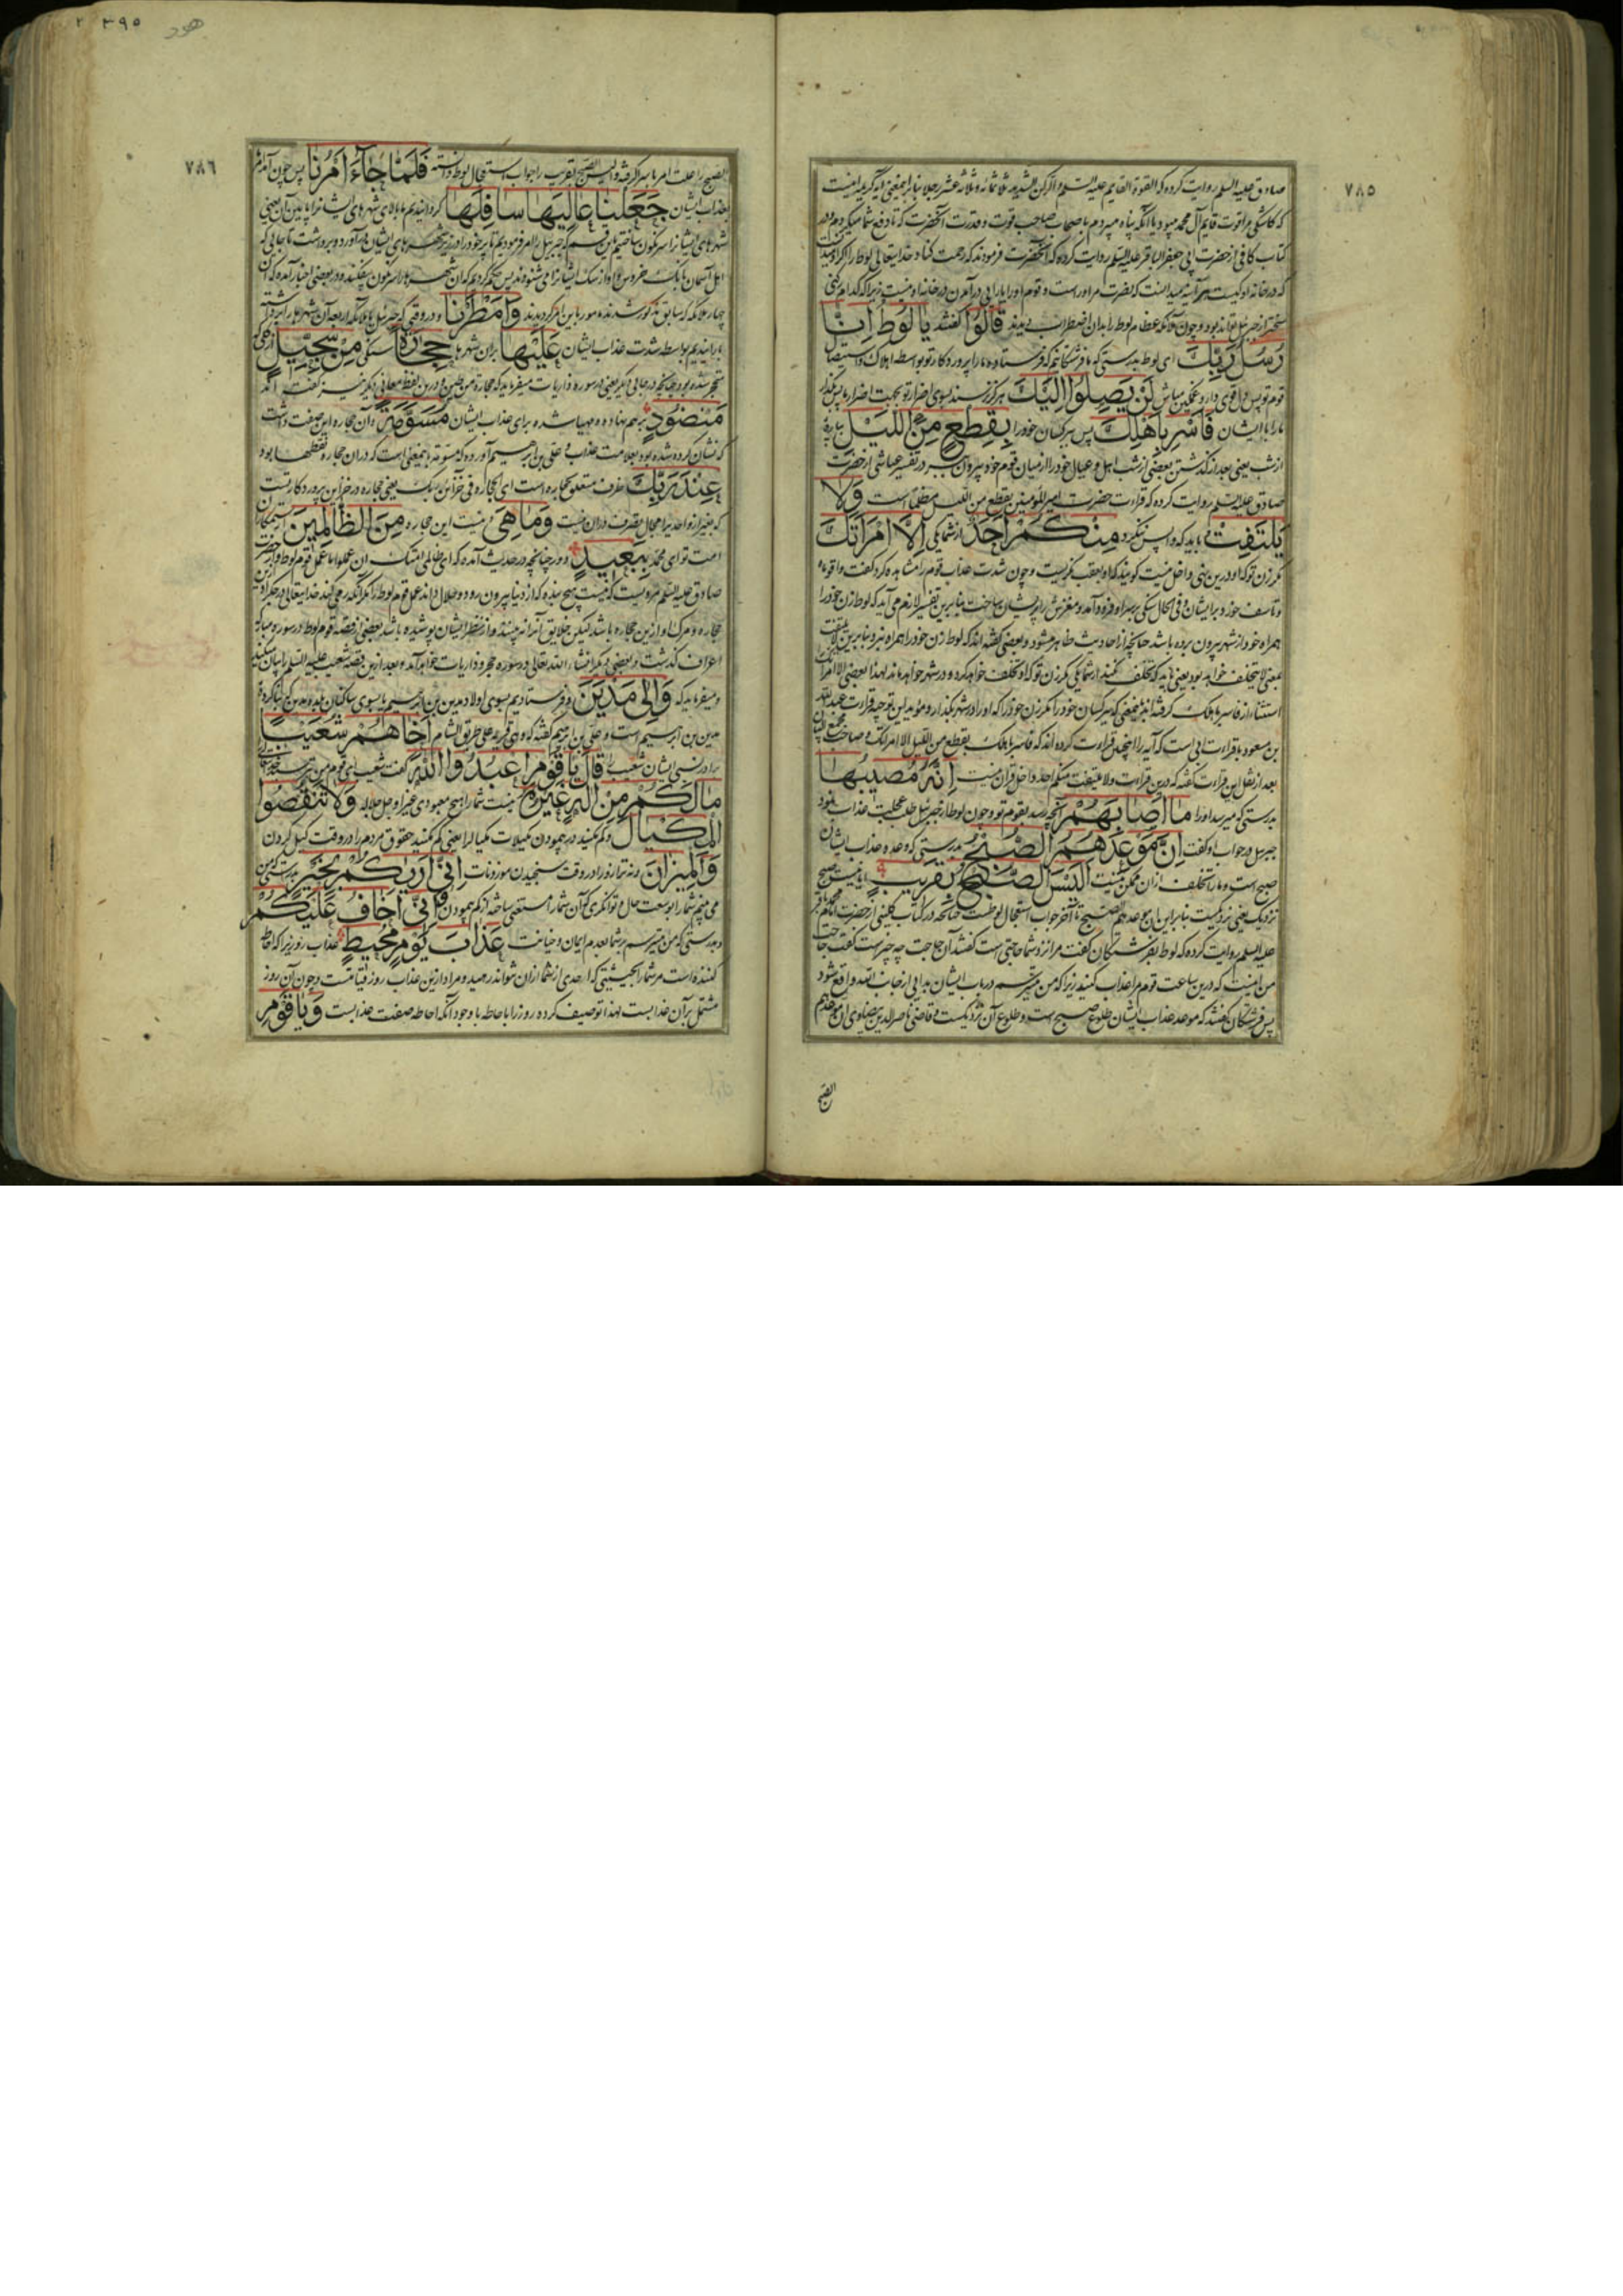 ٧٨٥
صادق علیه السلم روایت کرده که القوة القایم علیه السلم و الرکن الشدید ثلاثمائة و ثلاثه عشر رجلا بنابراین معنی آیه کریمه اینست
که کاشکی مرا قوت قایم آل محمد میبود یا آنکه پناه میبردم باصحاب صاحب قوت و قدرت آنحضرت که تا دفع شما میکردم و در
کتاب کافی از حضرت ابی جعفر الباقر علیه السلم روایت کرده که آنحضرت فرمودند که رحمت کناد خدایتعالی لوط را اگر او میدانست
که در خانه او کیست هر آینه میدانست که نصرت مر او راست و قوم او را یارایی در آمدن در خانه او نیست زیرا که کدام رکنی
سختتر از جبرئیل تواند بود و چون ملائکه عظام لوط را بدان اضطراب دیدند قَالُوا گفتند یَا لُوطُ اِنَّا
رُسُلُ رَبِّكَ ای لوط بدرستی که ما فرشتگانیم که فرستاده ما را پروردگار تو بواسطه اهلاک و استیصال
قوم تو پس دل قوی دار و غمگین مباش لَنْ یَصِلُوا اِلَیْكَ هرگز نرسند بسوی اضرار تو بجهت اضرار ما پس بگذار
ما را با ایشان فَاَسْرِ بِاَهْلِكَ پس ببر کسان خود را بِقِطْعٍ مِنَ اللَّیْلِ بپاره
از شب یعنی بعد از گذشتن بعضی از شب اهل و عیال خود را از میان قوم خود بیرون ببر در تفسیر عیاشی از حضرت
صادق علیه السلم روایت کرده که قراءت حضرت امیر المؤمنین بقطع من اللیل مظلما است وَلَا
یَلْتَفِتْ و باید که واپس ننگرد مِنْكُمْ اَحَدٌ از شما یکی اِلَّا امْرَاَتَكَ
مگر زن تو که او درین نهی داخل نیست گویند که او بعقب نگریست و چون شدت عذاب قوم را مشاهده کرد گفت وا قوماه
و تاسف خورد بر ایشان و فی الحال سنگی بر سر او فرود آمد و مغزش را پریشان ساخت بنابرین تفسیر لازم می آید که لوط زن خود را
همراه خود از شهر بیرون برده باشد چنانچه از احادیث ظاهر میشود و بعضی گفته اند که لوط زن خود را همراه نبرد و بنابرین لا یلتفت
بمعنی لا یتخلف خواهد بود یعنی باید که تخلف نکنید از شما یکی مگر زن تو که او تخلف خواهد کرد و در شهر خواهد ماند لهذا بعضی الا امراتک را
استثنا از فاسر باهلک گرفته اند بمعنی که ببر کسان خود را مگر زن خود را که او را در شهر بگذار و مؤید این توجیه قراءت عبد الله
بن مسعود با قراءت ابی است که آیه را اینچنین قراءت کرده اند که فاسر باهلک بقطع من اللیل الا امراتک و صاحب مجمع البیان
بعد از نقل این قراءت گفته که درین قراءت ولا یلتفت منکم احد داخل قرآن نیست اِنَّهُ مُصِیبُهَا
بدرستی که میرسد او را مَا اَصَابَهُمْ آنچه رسد بقوم تو و چون لوط از جبرئیل طلب عجلت عذاب نمود
جبرئیل در جواب او گفت اِنَّ مَوْعِدَهُمُ الصُّبْحُ بدرستی که وعده عذاب ایشان
صبح است و ما را تخلف از آن ممکن نیست اَلَیْسَ الصُّبْحُ بِقَرِیبٍ ایا نیست صبح
نزدیک یعنی نزدیکست بنابراین ان موعدهم الصبح تا آخر جواب استعجال لوطست چنانچه در کتاب کلینی از حضرت امام محمد باقر
علیه السلم روایت کرده که لوط بفرشتگان گفت مرا نزد شما حاجتی است گفتند آن حاجت چه چیز است گفت حاجت
من اینست که درین ساعت قوم مرا عذاب کنید زیرا که من میترسم در باب ایشان بدایی از جانب الله واقع شود
پس فرشتگان گفتند که موعد عذاب ایشان طلوع صبح است و طلوع آن نزدیکست و قاضی ناصر الدین بیضاوی ان موعدهم
الصبح
٣٩٥
هود
٧٨٦
الصبح را علت امر باسر گرفته و الیس الصبح بقریب را جواب استعجال لوط دانسته فَلَمَّا جَاءَ اَمْرُنَا پس چون آمد امر ما
بعذاب ایشان جَعَلْنَا عَالِیَهَا سَافِلَهَا گردانیدیم ما بالای شهرهای ایشانرا پایین آن یعنی
شهرهای ایشانرا سرنگون ساختیم باین قسم که جبرئیل را امر فرمودیم تا پر خود را در زیر شهرهای ایشان در آورد و برداشت تا جایی که
اهل آسمان بانگ خروس و آواز سگ ایشانرا می شنودند پس حکم کردیم که آن شهرها را سرنگون بیفکند و در بعضی اخبار آمده که آن
چهار ملائکه که سابق مذکور شدند مامور باین امر گردیدند وَاَمْطَرْنَا و در وقتی که جبرئیل با ملائکه اربعه آن شهرها را برمیگردانید
بارانیدیم بواسطه شدت عذاب ایشان عَلَیْهَا بر آن شهرها حِجَارَةً سنگی مِنْ سِجِّیلٍ از گلی
متحجر شده بود چنانچه در جایی دیگر یعنی در سوره ذاریات میفرماید که حجارة من طین و درین لفظ معانی دیگر نیز گفته اند
مَنْضُودٍ بر هم نهاده و مهیا شده برای عذاب ایشان مُسَوَّمَةً و آن حجاره این صفت داشت
که نشان کرده شده بود بعلامت عذاب و علی بن ابرهیم آورده که مسومة باینمعنی است که در آن حجاره نقطها بود
عِنْدَ رَبِّكَ ظرف متعلق بحجاره است ای الحجارة فی خزائن ربک یعنی حجاره در خزاین پروردگار تست
که بغیر از او احدیرا مجال تصرف در آن نیست وَمَا هِیَ و نیست این حجاره مِنَ الظَّالِمِینَ از ستمکاران
امت تو ای محمد بِبَعِیدٍ دور چنانچه در حدیث آمده که ای ظالمی امتک ان عملوا ما عمل قوم لوط و از حضرت
صادق علیه السلم مرویست که نیست هیچ بنده که از دنیا بیرون رود و حلال داند عمل قوم لوط را مگر آنکه رمی کند خدایتعالی در جگر او ازین
حجاره و مرگ او ازین حجاره باشد لیکن خلایق آنرا نه بینند و از نظر ایشان پوشیده باشد بعضی از قصه قوم لوط در سوره مبارکه
اعراف گذشت و بعضی دیگر انشاء الله تعالی در سوره حجر و ذاریات خواهد آمد و بعد ازین قصه شعیب علیه السلم را بیان میکند
و میفرماید که وَاِلٰی مَدْیَنَ و فرستادیم بسوی اولاد مدین بن ابرهیم یا بسوی ساکنان بلده مدین که بنا کرده
مدین بن ابرهیم است و علی بن ابرهیم گفته که وهی قریة علی طریق الشام اَخَاهُمْ شُعَیْبًا
برادر نسبی ایشان شعیب را قَالَ یَا قَوْمِ اعْبُدُوا اللهَ گفت شعیب ای قوم من بپرستید خدایتعالی را
مَا لَكُمْ مِنْ اِلٰهٍ غَیْرُهُ نیست شما را هیچ معبودی غیر او جل جلاله وَلَا تَنْقُصُوا
الْمِكْیَالَ و کم مکنید در پیمودن مکیلات مکیال را یعنی کم مکنید حقوق مردم را در وقت کیل کردن
وَالْمِیزَانَ و نه ترازو را در وقت سنجیدن موزونات اِنِّی اَرٰیكُمْ بِخَیْرٍ بدرستی که من
می بینم شما را بوسعت حال و توانگری که آن شما را مستغنی ساخته از کم پیمودن وَاِنِّی اَخَافُ عَلَیْكُمْ
و بدرستی که من میترسم بر شما بعدم ایمان و خیانت عَذَابَ یَوْمٍ مُحِیطٍ عذاب روزیرا که احاطه
کننده است مر شما را بحیثیتی که احدی از شما از آن نتواند رهید و مراد ازین عذاب روز قیامتست و چون آن روز
مشتمل بر آن عذابست لهذا توصیف کرده روز را باحاطه با وجود آنکه احاطه صفت عذابست وَیَا قَوْمِ